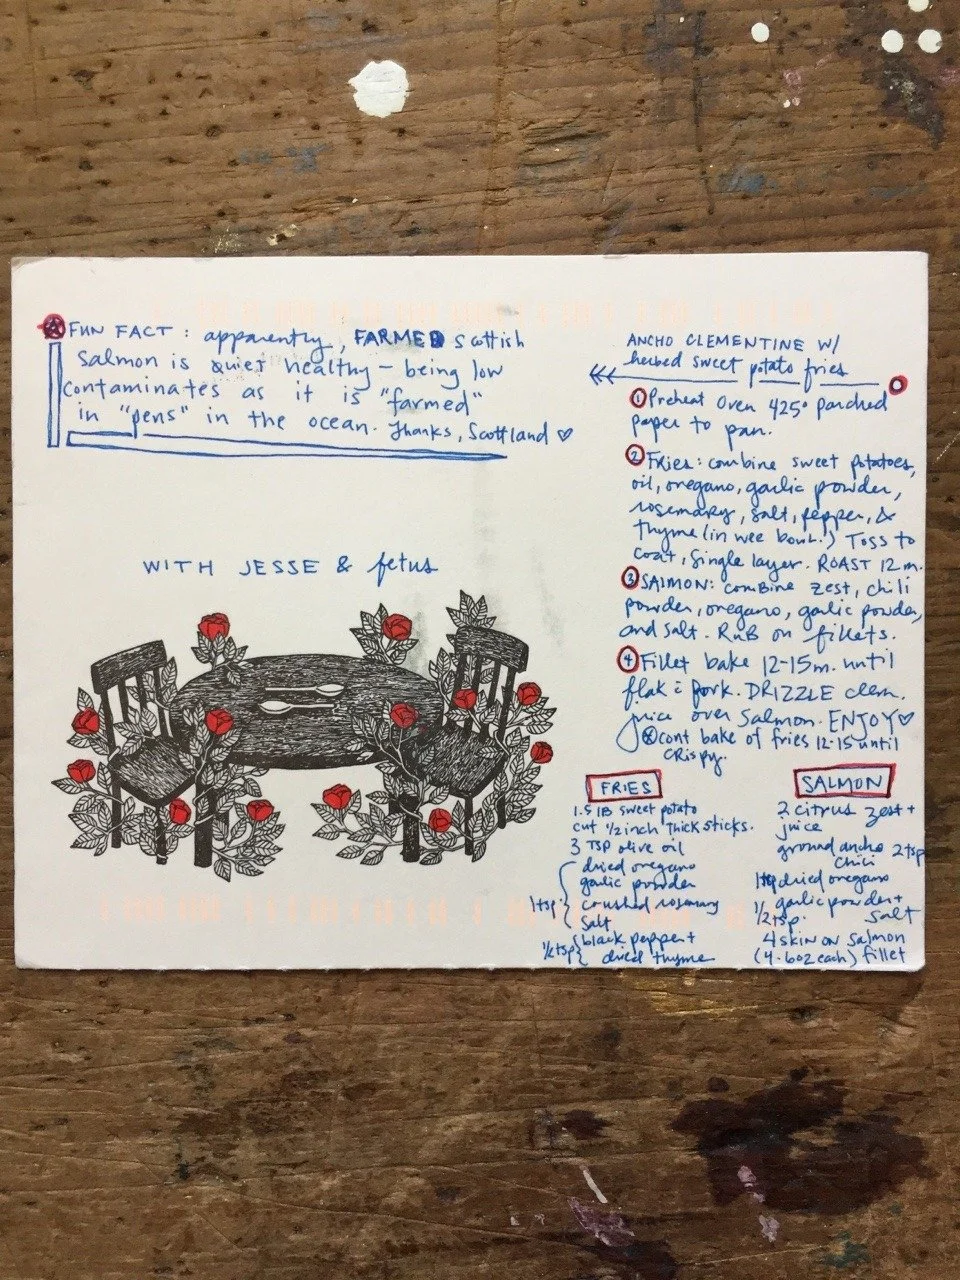 FUN FACT: apparently, FARMED Scottish
Salmon is quiet healthy – being low
contaminates as it is "farmed"
in "pens" in the ocean. Thanks, Scottland ♡
WITH JESSE & fetus
ANCHO CLEMENTINE W/
herbed sweet potato fries
① Preheat oven 425° parched
paper to pan.
② Fries: combine sweet potatoes,
oil, oregano, garlic powder,
rosemary, salt, pepper, &
thyme (in wee bowl!) Toss to
coat, single layer. ROAST 12 m.
③ SALMON: combine zest, chili
powder, oregano, garlic powder,
and salt. RUB on fillets.
④ Fillet bake 12-15 m. until
flak c fork. DRIZZLE clem.
juice over salmon. ENJOY ♡
cont bake of fries 12-15 until
crispy.
FRIES
1.5 lB sweet potato
cut ½ inch thick sticks.
3 TSP olive oil
dried oregano
garlic powder
1 tsp crushed rosemary
salt
½ tsp black pepper +
dried thyme
SALMON
2 citrus zest +
juice
ground ancho 2 tsp
chili
1 tsp dried oregano
garlic powder +
1/2 tsp. salt
4 skin on salmon
(4-6oz each) fillet